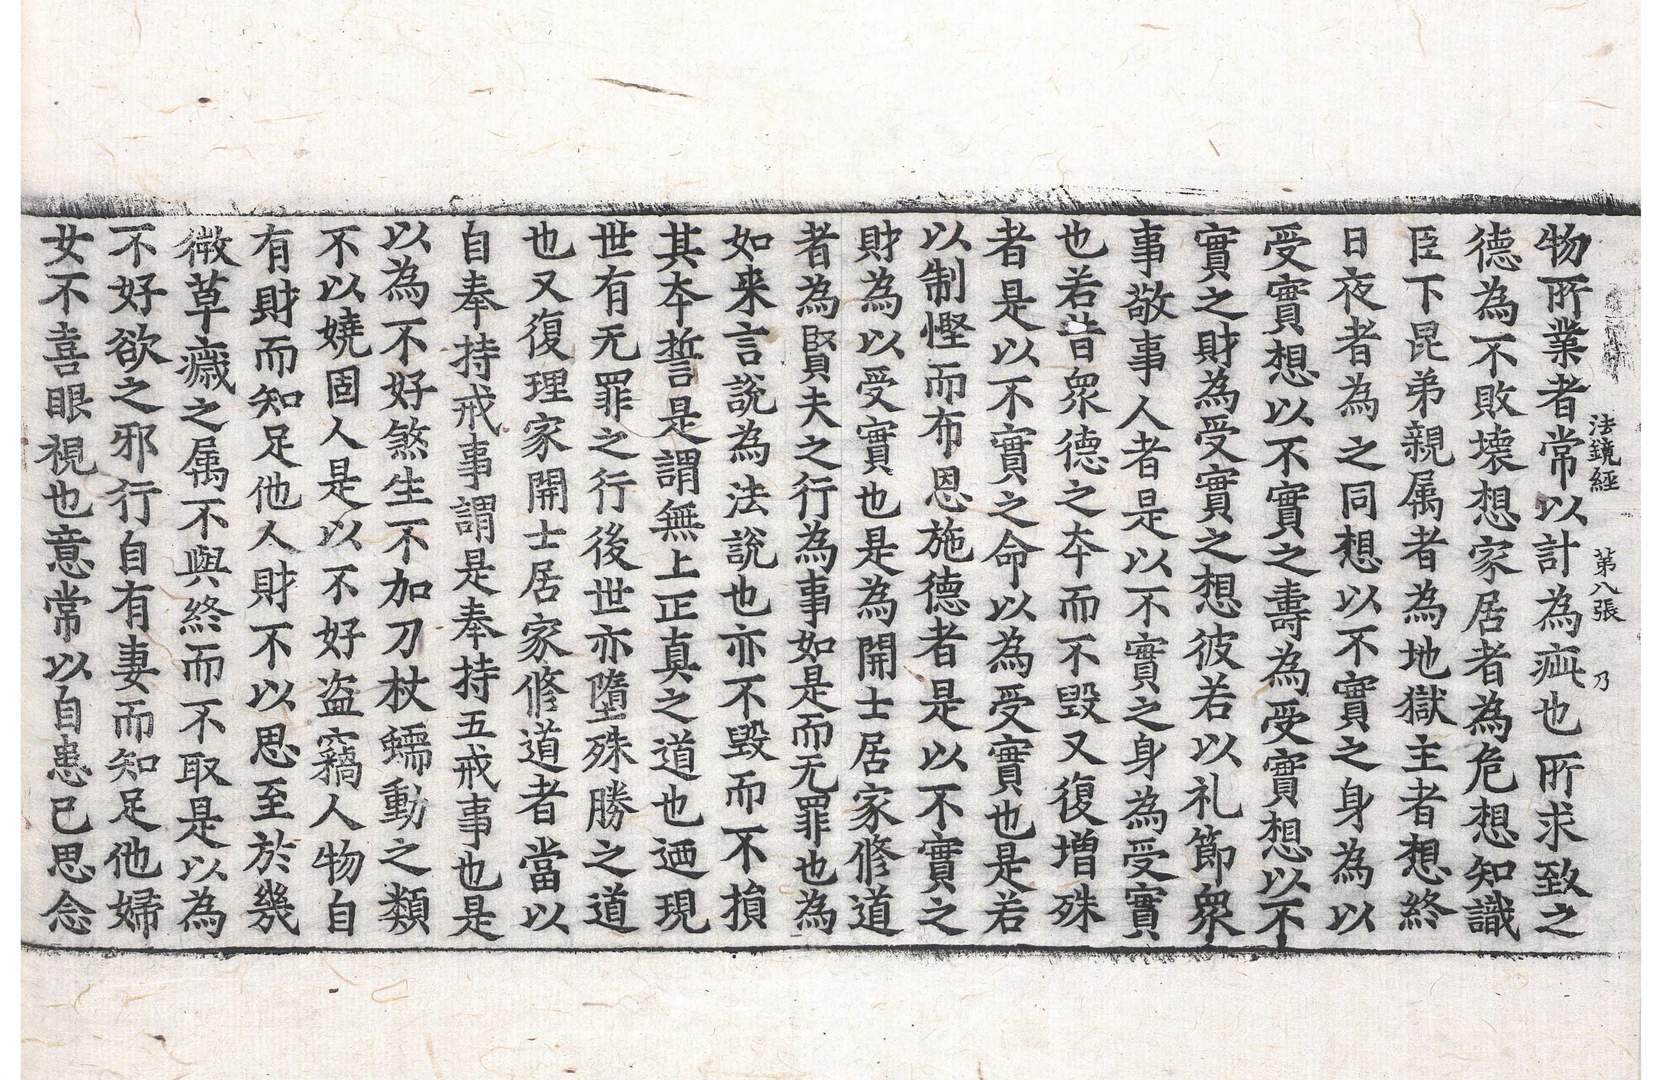 法鏡經 第八張 乃
物所業者常以計為疵也所求致之
德為不敗壞想家居者為危想知識
臣下昆弟親属者為地獄主者想終
日夜者為之同想以不實之身為以
受實想以不實之壽為受實想以不
實之財為受實之想彼若以礼節衆
事敬事人者是以不實之身為受實
也若昔衆德之夲而不毀又復增殊
者是以不實之命以為受實也是若
以制慳而布恩施德者是以不實之
財為以受實也是為開士居家修道
者為賢夫之行為事如是而无罪也為
如来言說為法說也亦不毀而不損
其夲誓是謂無上正真之道也迺現
世有无罪之行後世亦墮殊勝之道
也又復理家開士居家修道者當以
自奉持戒事謂是奉持五戒事也是
以為不好煞生不加刀杖蠕動之類
不以嬈固人是以不好盗竊人物自
有財而知足他人財不以思至於幾
微草薉之属不與終而不取是以為
不好欲之邪行自有妻而知足他婦
女不喜眼視也意常以自患已思念